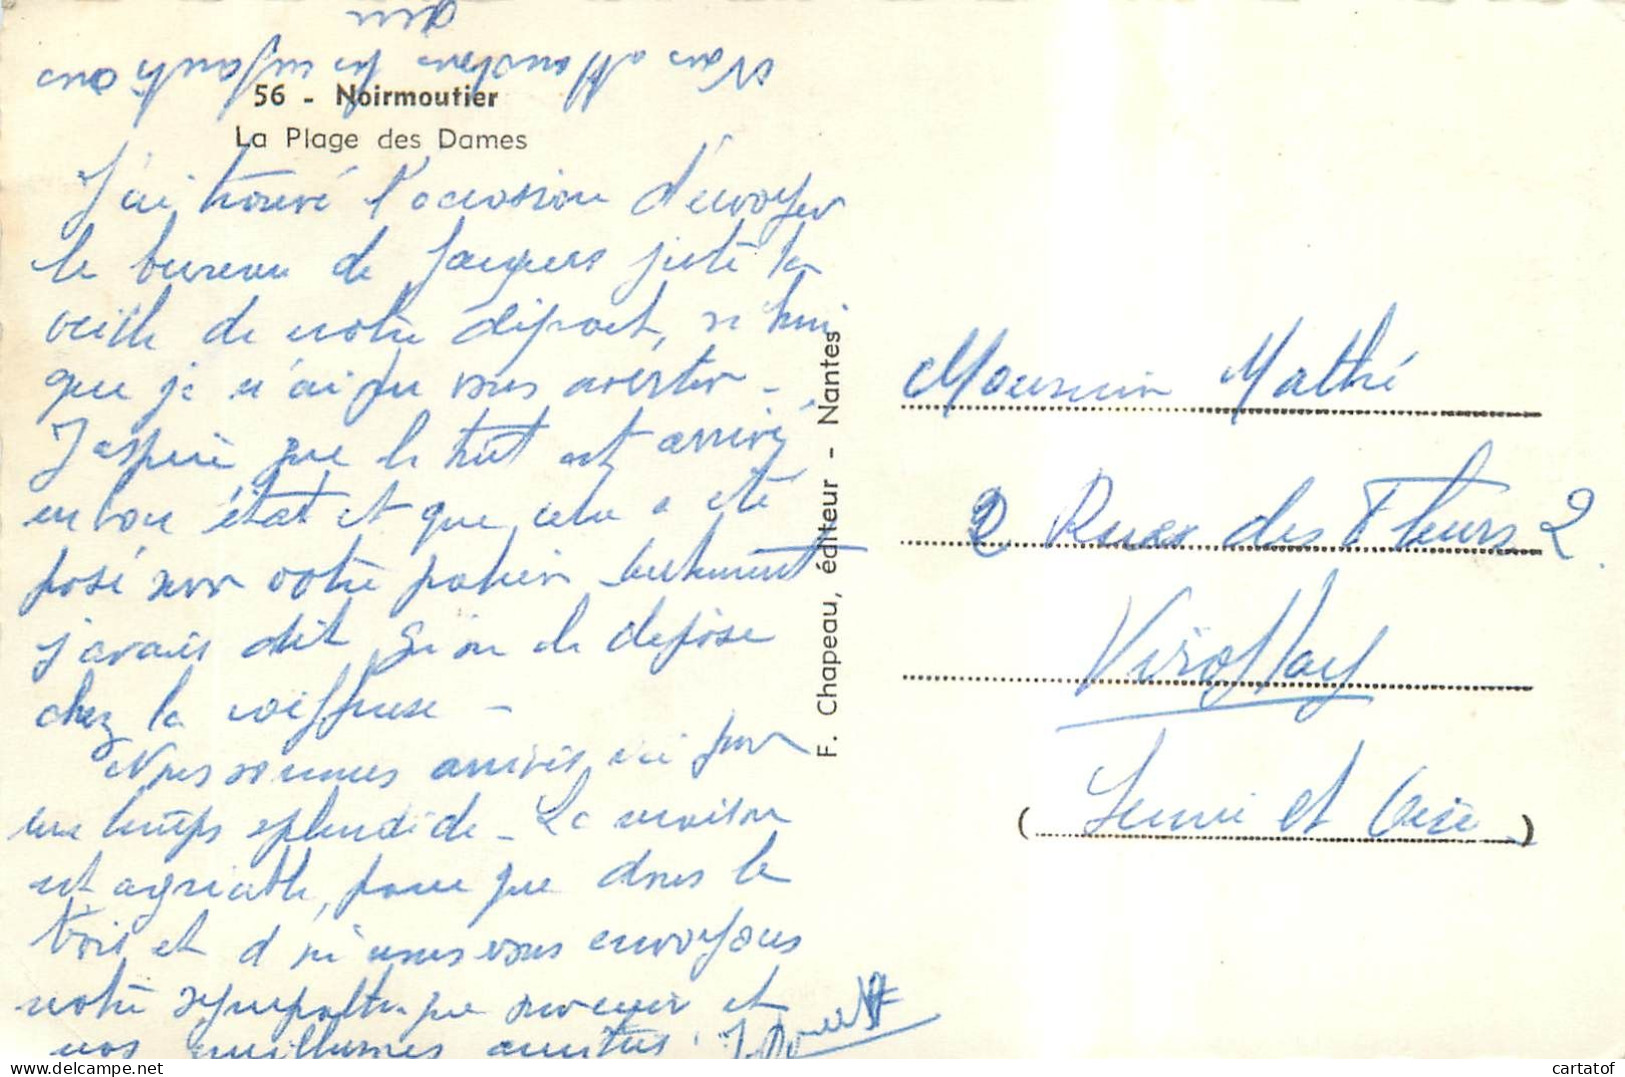 Nous attendons les enfants
56 - Noirmoutier
La Plage des Dames
J'ai trouvé l'occasion d'envoyer
le bureau de Jacques juste la
veille de notre départ, si bien
que je n'ai pu vous avertir -
J'espère que le tout est arrivé
en bon état et que cela a été
posé sur votre palier autrement
j'avais dit qu'on le dépose
chez la coiffeuse -
Nous sommes arrivés ici par
un temps splendide - La maison
est agréable, pour que dans le
bois et d'ici nous vous envoyons
notre sympathique souvenir et
nos meilleures amitiés.
F. Chapeau, éditeur - Nantes
Monsieur Mathé
2 Rues des Fleurs 2
Viroflay
(Seine et Oise)
cartatof